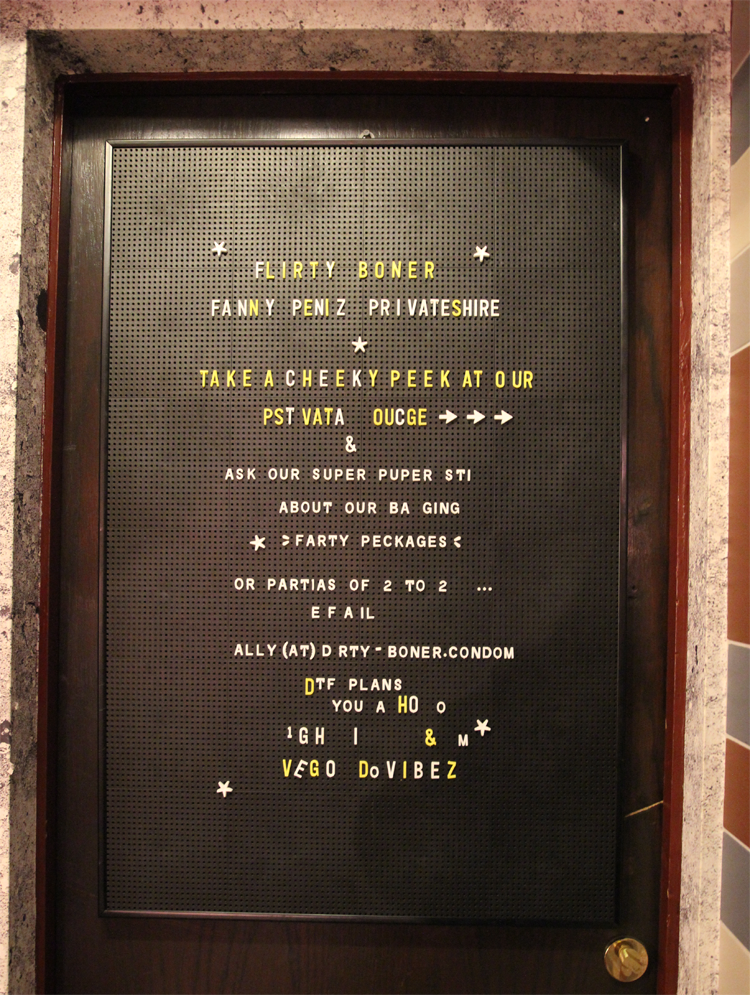 FLIRTY BONER
FANNY PENIZ PRIVATESHIRE
TAKE A CHEEKY PEEK AT OUR
PSTVATA OUCGE →→→
&
ASK OUR SUPER PUPER STI
ABOUT OUR BA GING
>FARTY PECKAGES<
OR PARTIAS OF 2 TO 2 ...
EFAIL
ALLY(AT)D RTY-BONER.CONDOM
DTF PLANS
YOU A HO O
1GH I & M
VEGO DoVIBEZ